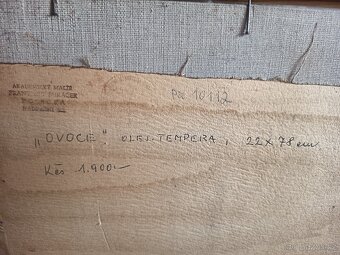 AKADEMICKÝ MALÍŘ
10112
„OVOCE“ OLEJ.TEMPERA, 22X78 cm.
Kčs 1.900.—